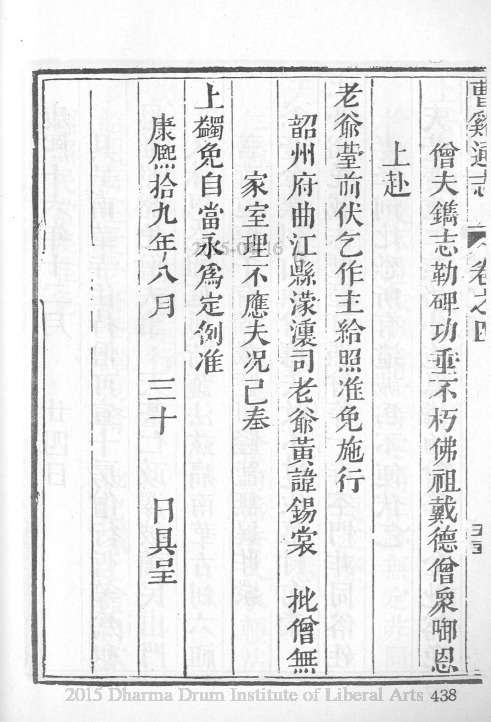 曹谿通志 卷之四 五
僧夫鐫志勒碑功垂不朽佛祖戴德僧衆啣恩
上赴
老爺臺前伏乞作主給照准免施行
韶州府曲江縣濛瀼司老爺黃諱錫裳 批僧無
家室理不應夫况已奉
上蠲免自當永爲定例准
康熙拾九年八月 三十 日具呈
2015 Dharma Drum Institute of Liberal Arts 438